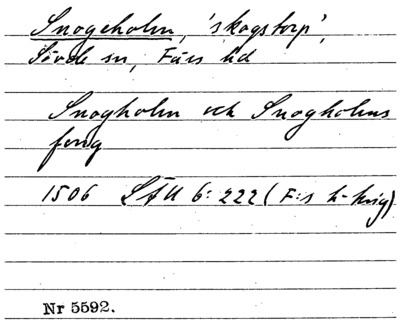 Snogeholm, 'skogstorp',
Sövde sn, Färs hd
Snogholm och Snogholms
fong
1506 LÄU 6:222 (F:s h-krig)
Nr 5592.